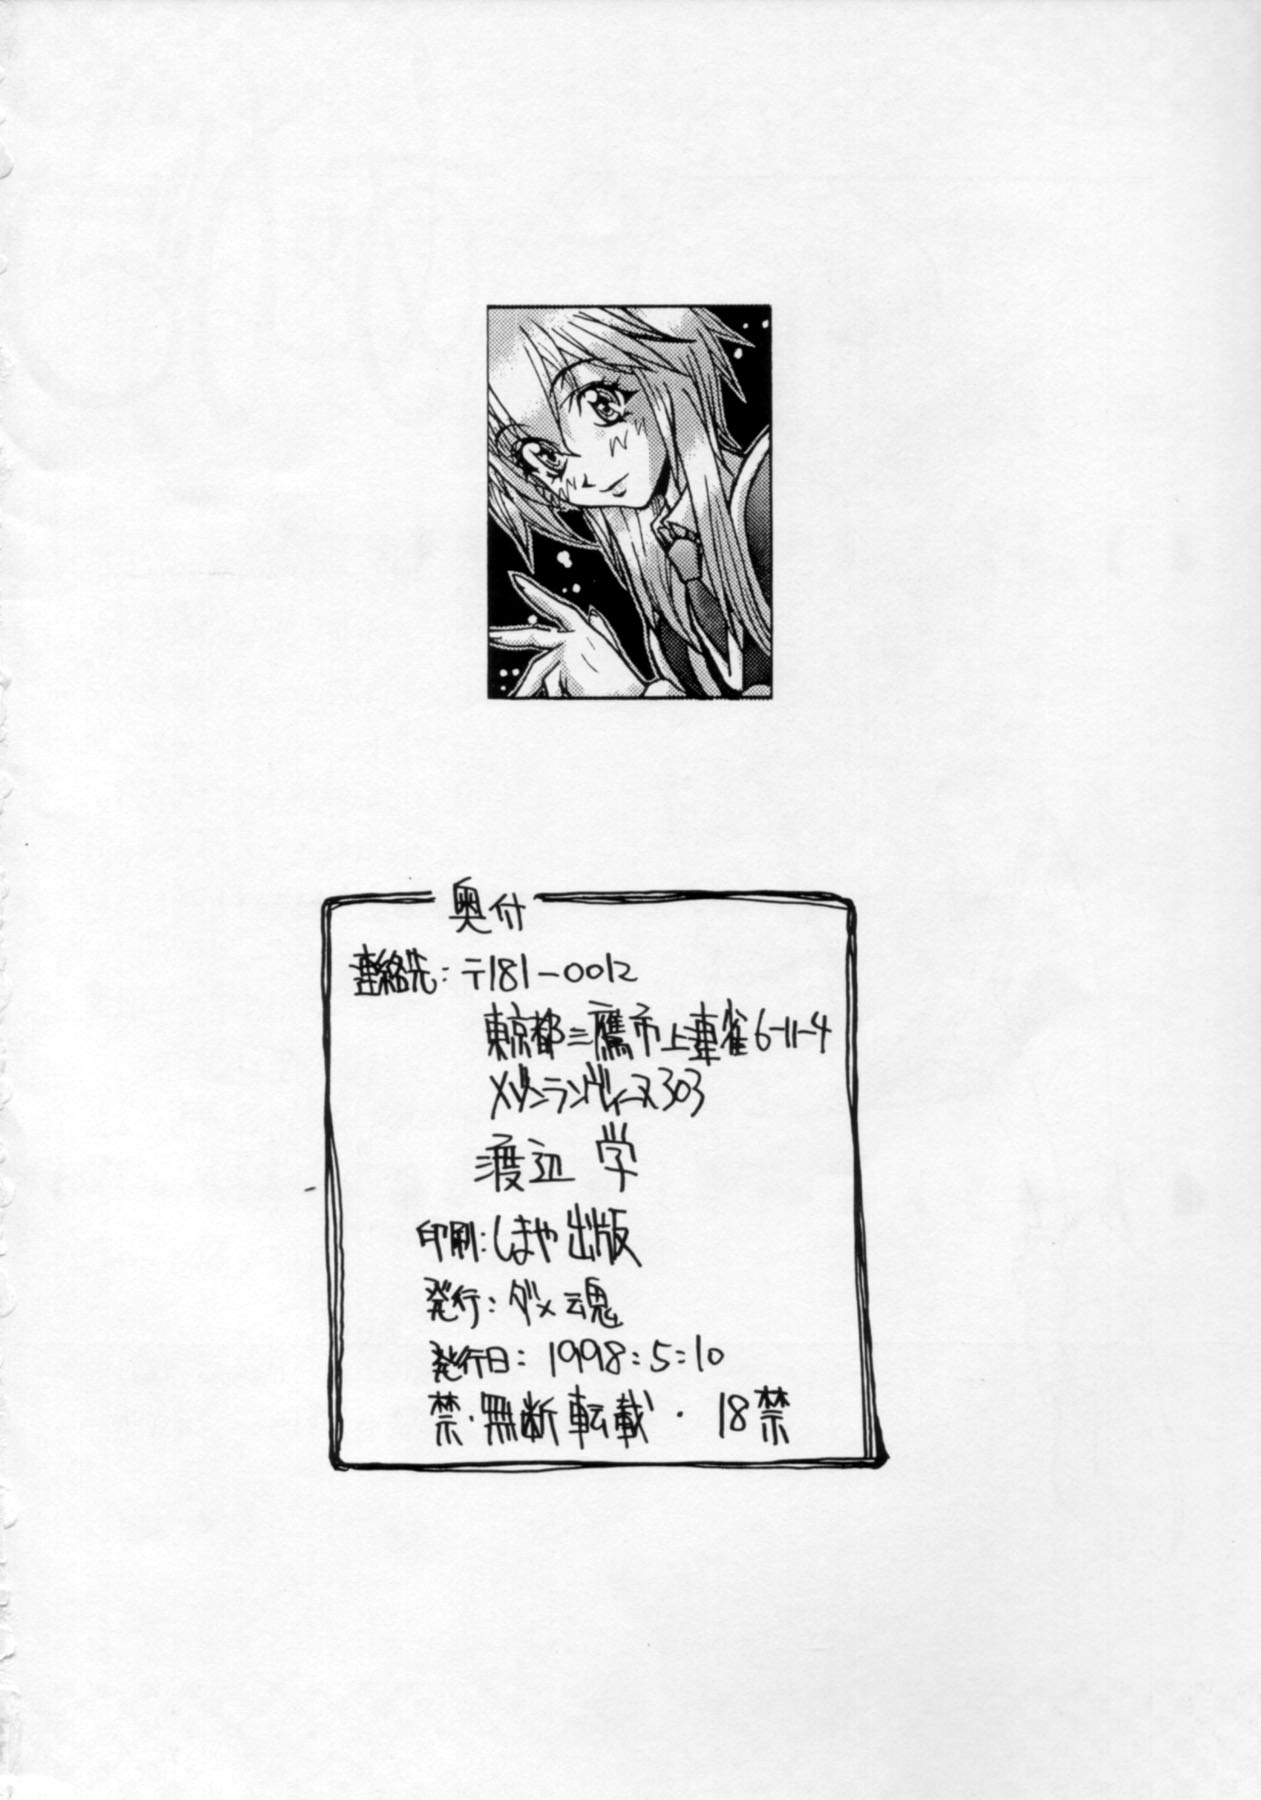 奥付
連絡先:〒181-0012
東京都三鷹市上連雀6-11-4
メゾンランヴィーヌ303
渡辺 学
印刷:しまや出版
発行:ダメ魂
発行日:1998:5:10
禁・無断転載・18禁